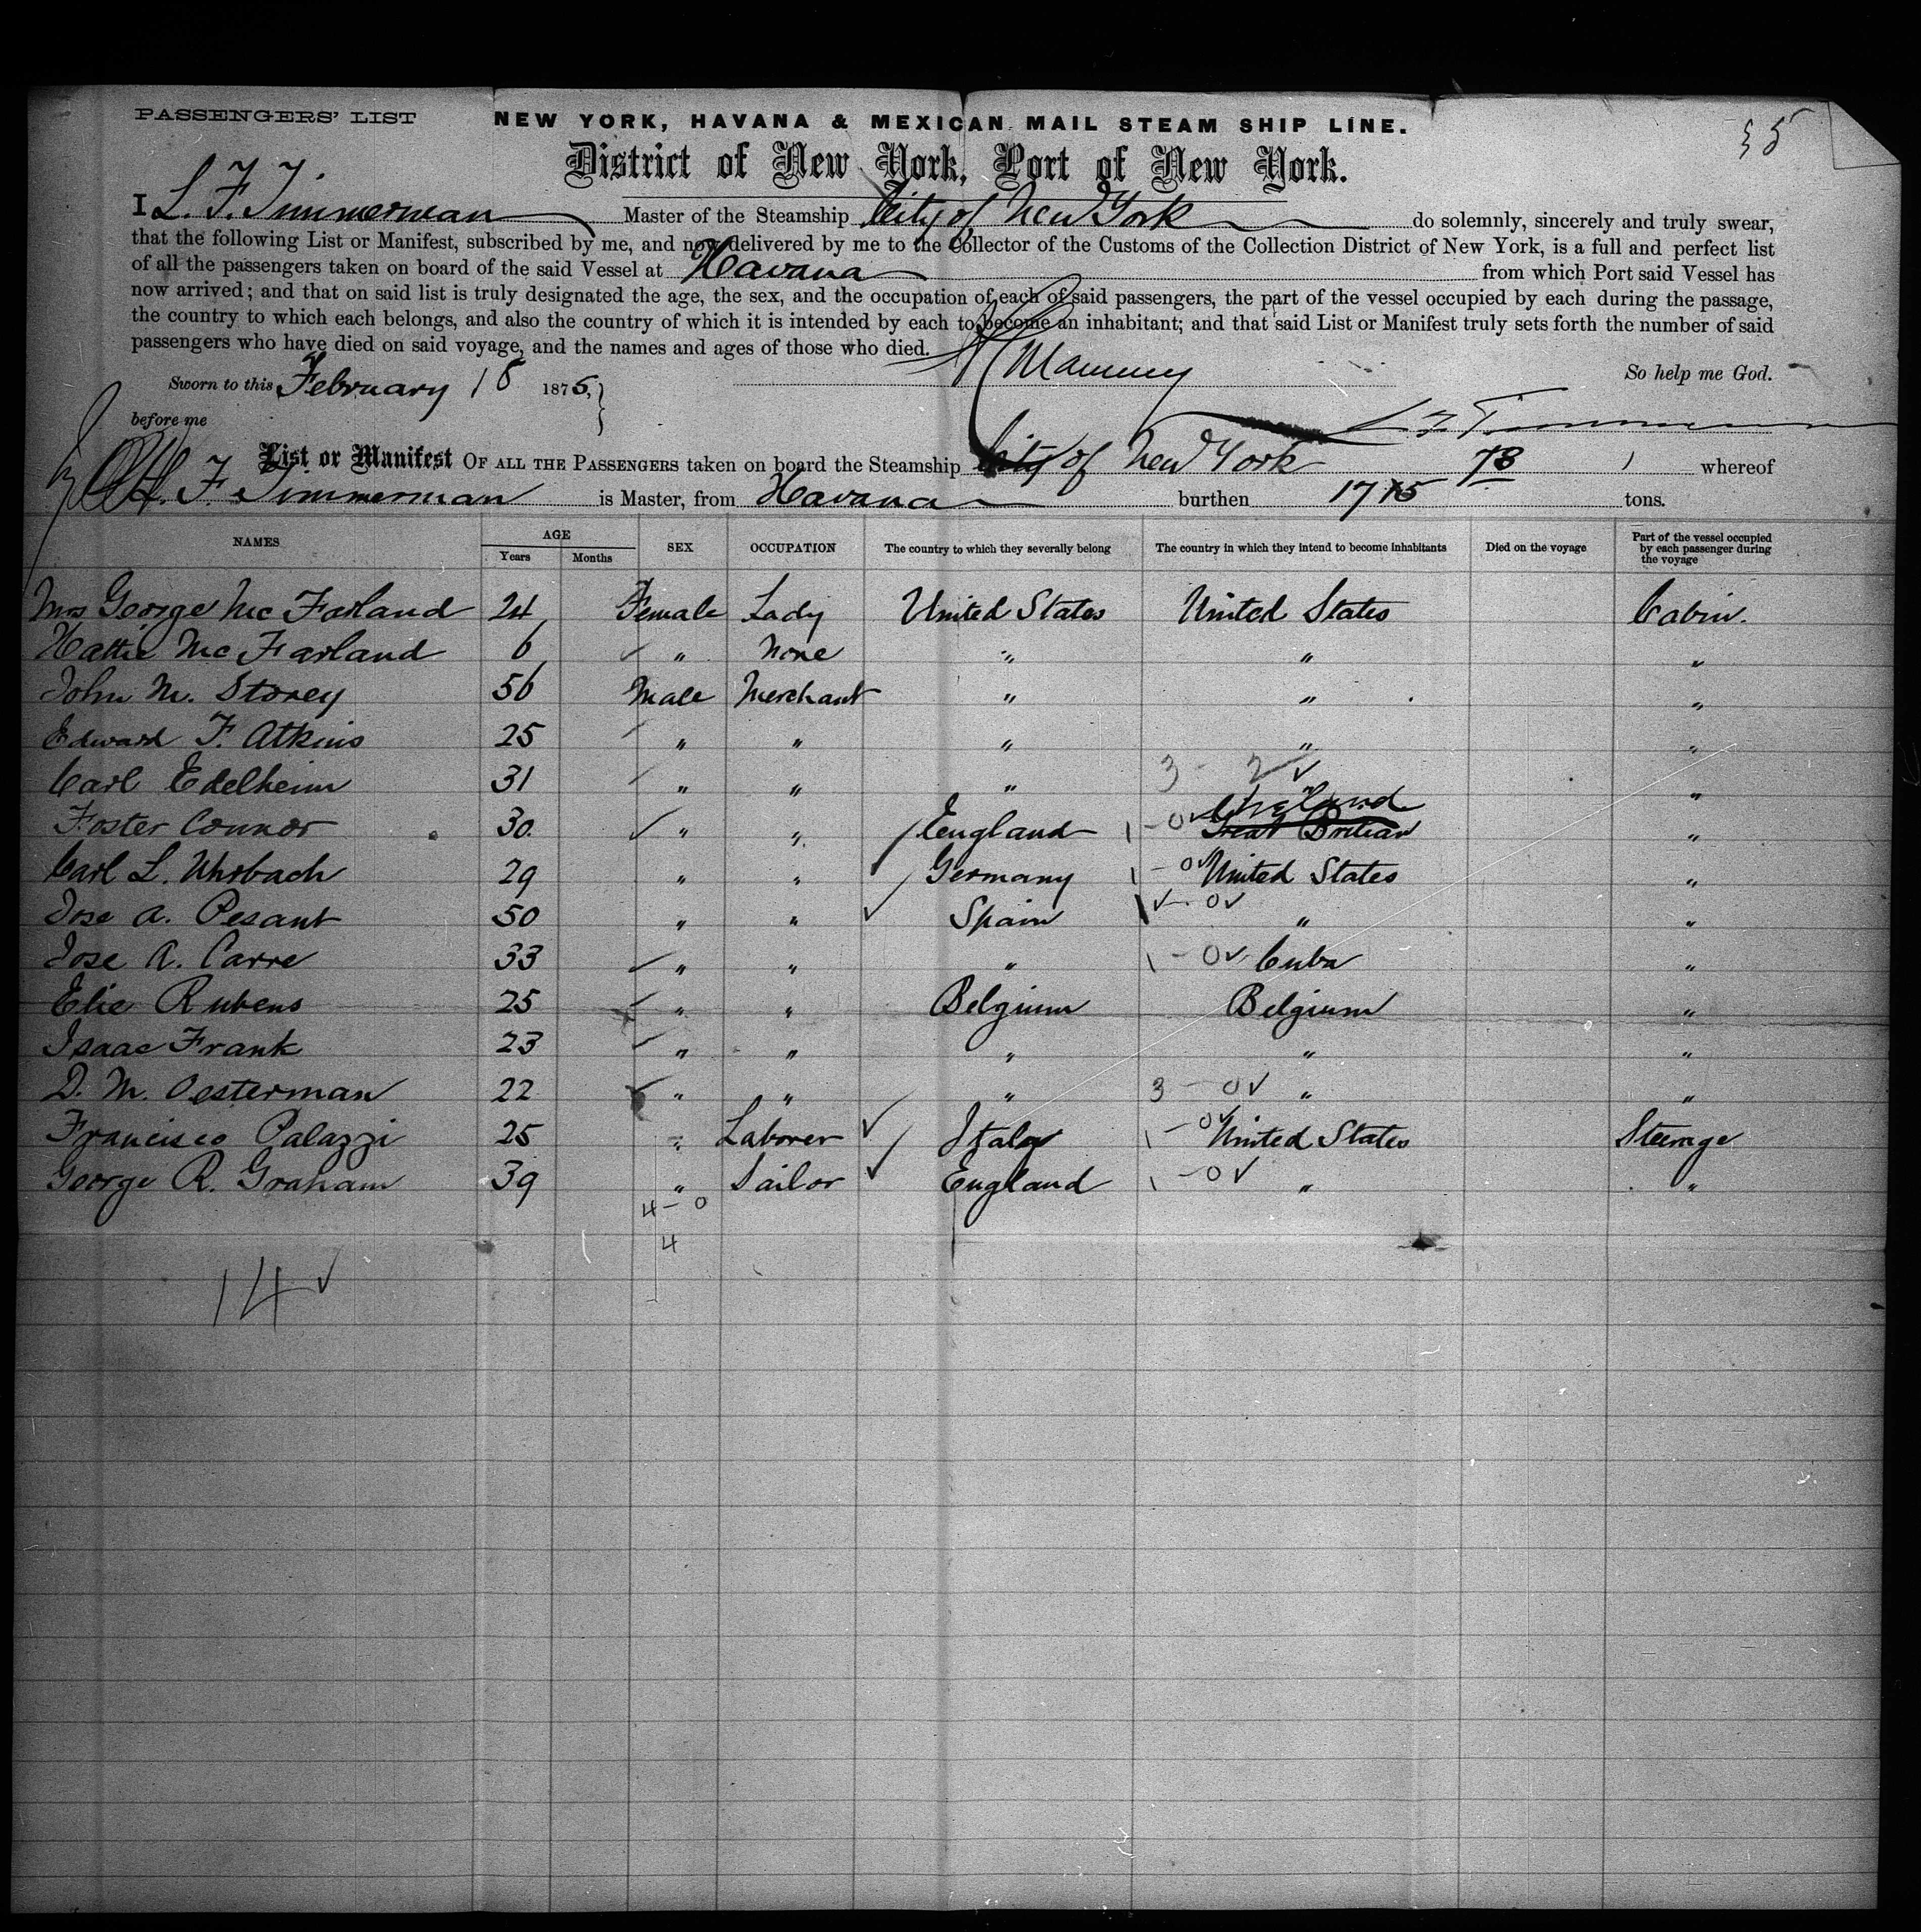 PASSENGERS' LIST NEW YORK, HAVANA & MEXICAN MAIL STEAM SHIP LINE.
District of New York, Port of New York.
I L. F. Timmerman Master of the Steamship City of New York do solemnly, sincerely and truly swear,
that the following List or Manifest, subscribed by me, and now delivered by me to the Collector of the Customs of the Collection District of New York, is a full and perfect list
of all the passengers taken on board of the said Vessel at Havana from which Port said Vessel has
now arrived; and that on said list is truly designated the age, the sex, and the occupation of each of said passengers, the part of the vessel occupied by each during the passage,
the country to which each belongs, and also the country of which it is intended by each to become an inhabitant; and that said List or Manifest truly sets forth the number of said
passengers who have died on said voyage, and the names and ages of those who died.
Sworn to this February 18 1875, So help me God.
before me
List or Manifest OF ALL THE PASSENGERS taken on board the Steamship City of New York whereof
F. Timmerman is Master, from Havana burthen 1715 73 tons.
NAMES AGE Years Months SEX OCCUPATION The country to which they severally belong The country in which they intend to become inhabitants Died on the voyage Part of the vessel occupied by each passenger during the voyage
Mrs George McFarland 24 Female Lady United States United States Cabin.
Hattie McFarland 6 " None " " "
John M. Storey 56 Male Merchant " " "
Edward F. Atkins 25 " " " " "
Carl Edelheim 31 " " " 3 - 2 " "
Foster Connor 30 " " England 1 - 0 England Great Britian "
Carl L. 29 " " Germany 1 - 0 United States "
Jose A. Pesant 50 " " Spain 1 - 0 " "
Jose A. Carre 33 " " " 1 - 0 Cuba "
Elie Rubens 25 " " Belgium Belgium "
Isaac Frank 23 " " " " "
D. M. Oesterman 22 " " " 3 - 0 " "
Francisco Palazzi 25 " Laborer Italy 1 - 0 United States Steerage
George R. Graham 39 " Sailor England 1 - 0 " "
4 - 0
4
14